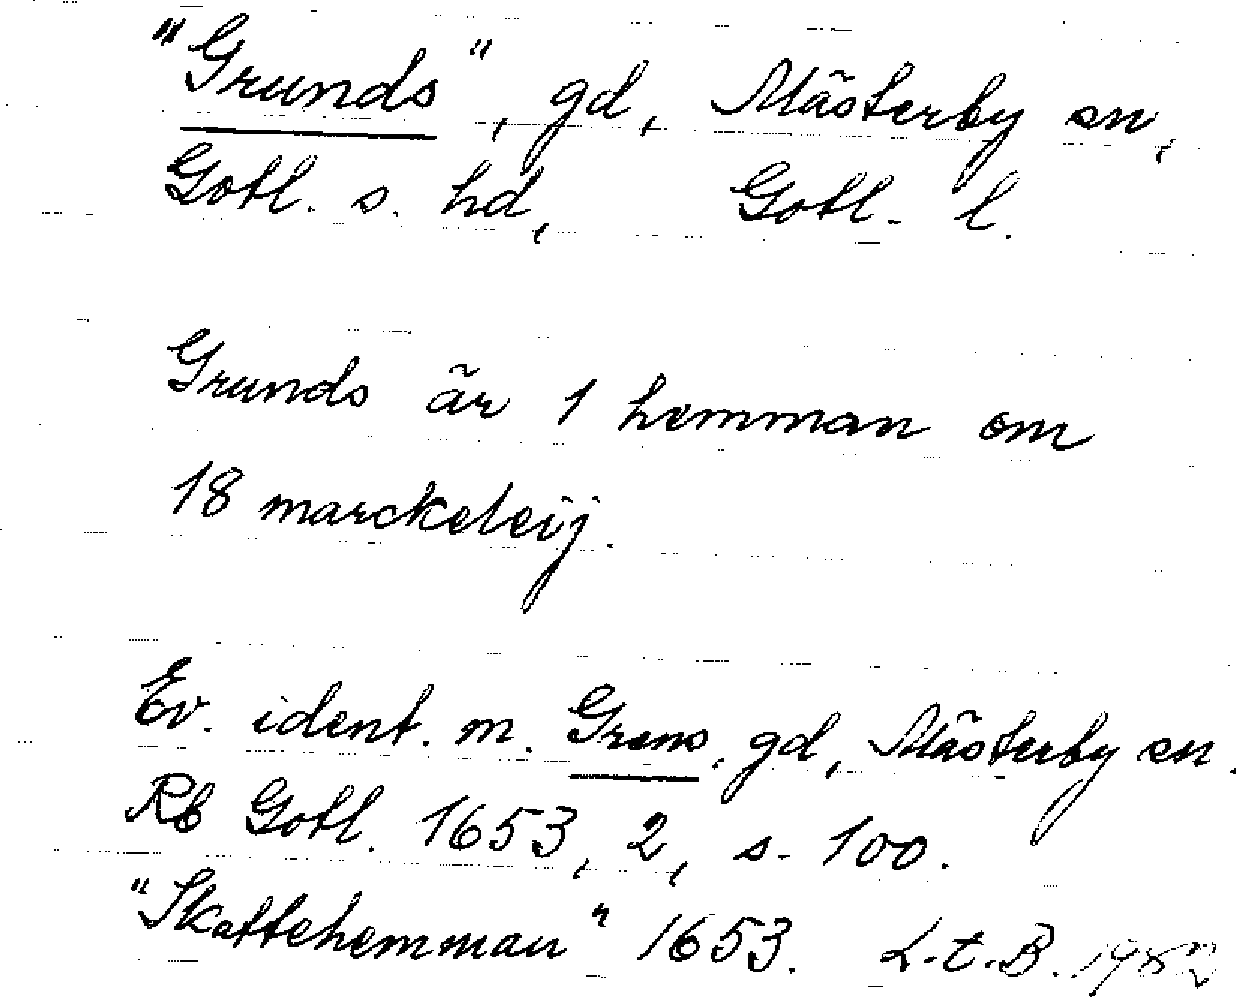 "Grunds", gd, Mästerby sn,
Gotl. s. hd, Gotl. l.
Grunds är 1 hemman om
18 marckeleij.
Ev. ident. m. Grens, gd, Mästerby sn.
Rb Gotl. 1653, 2, s. 100.
"Skattehemman" 1653. L.t.B.